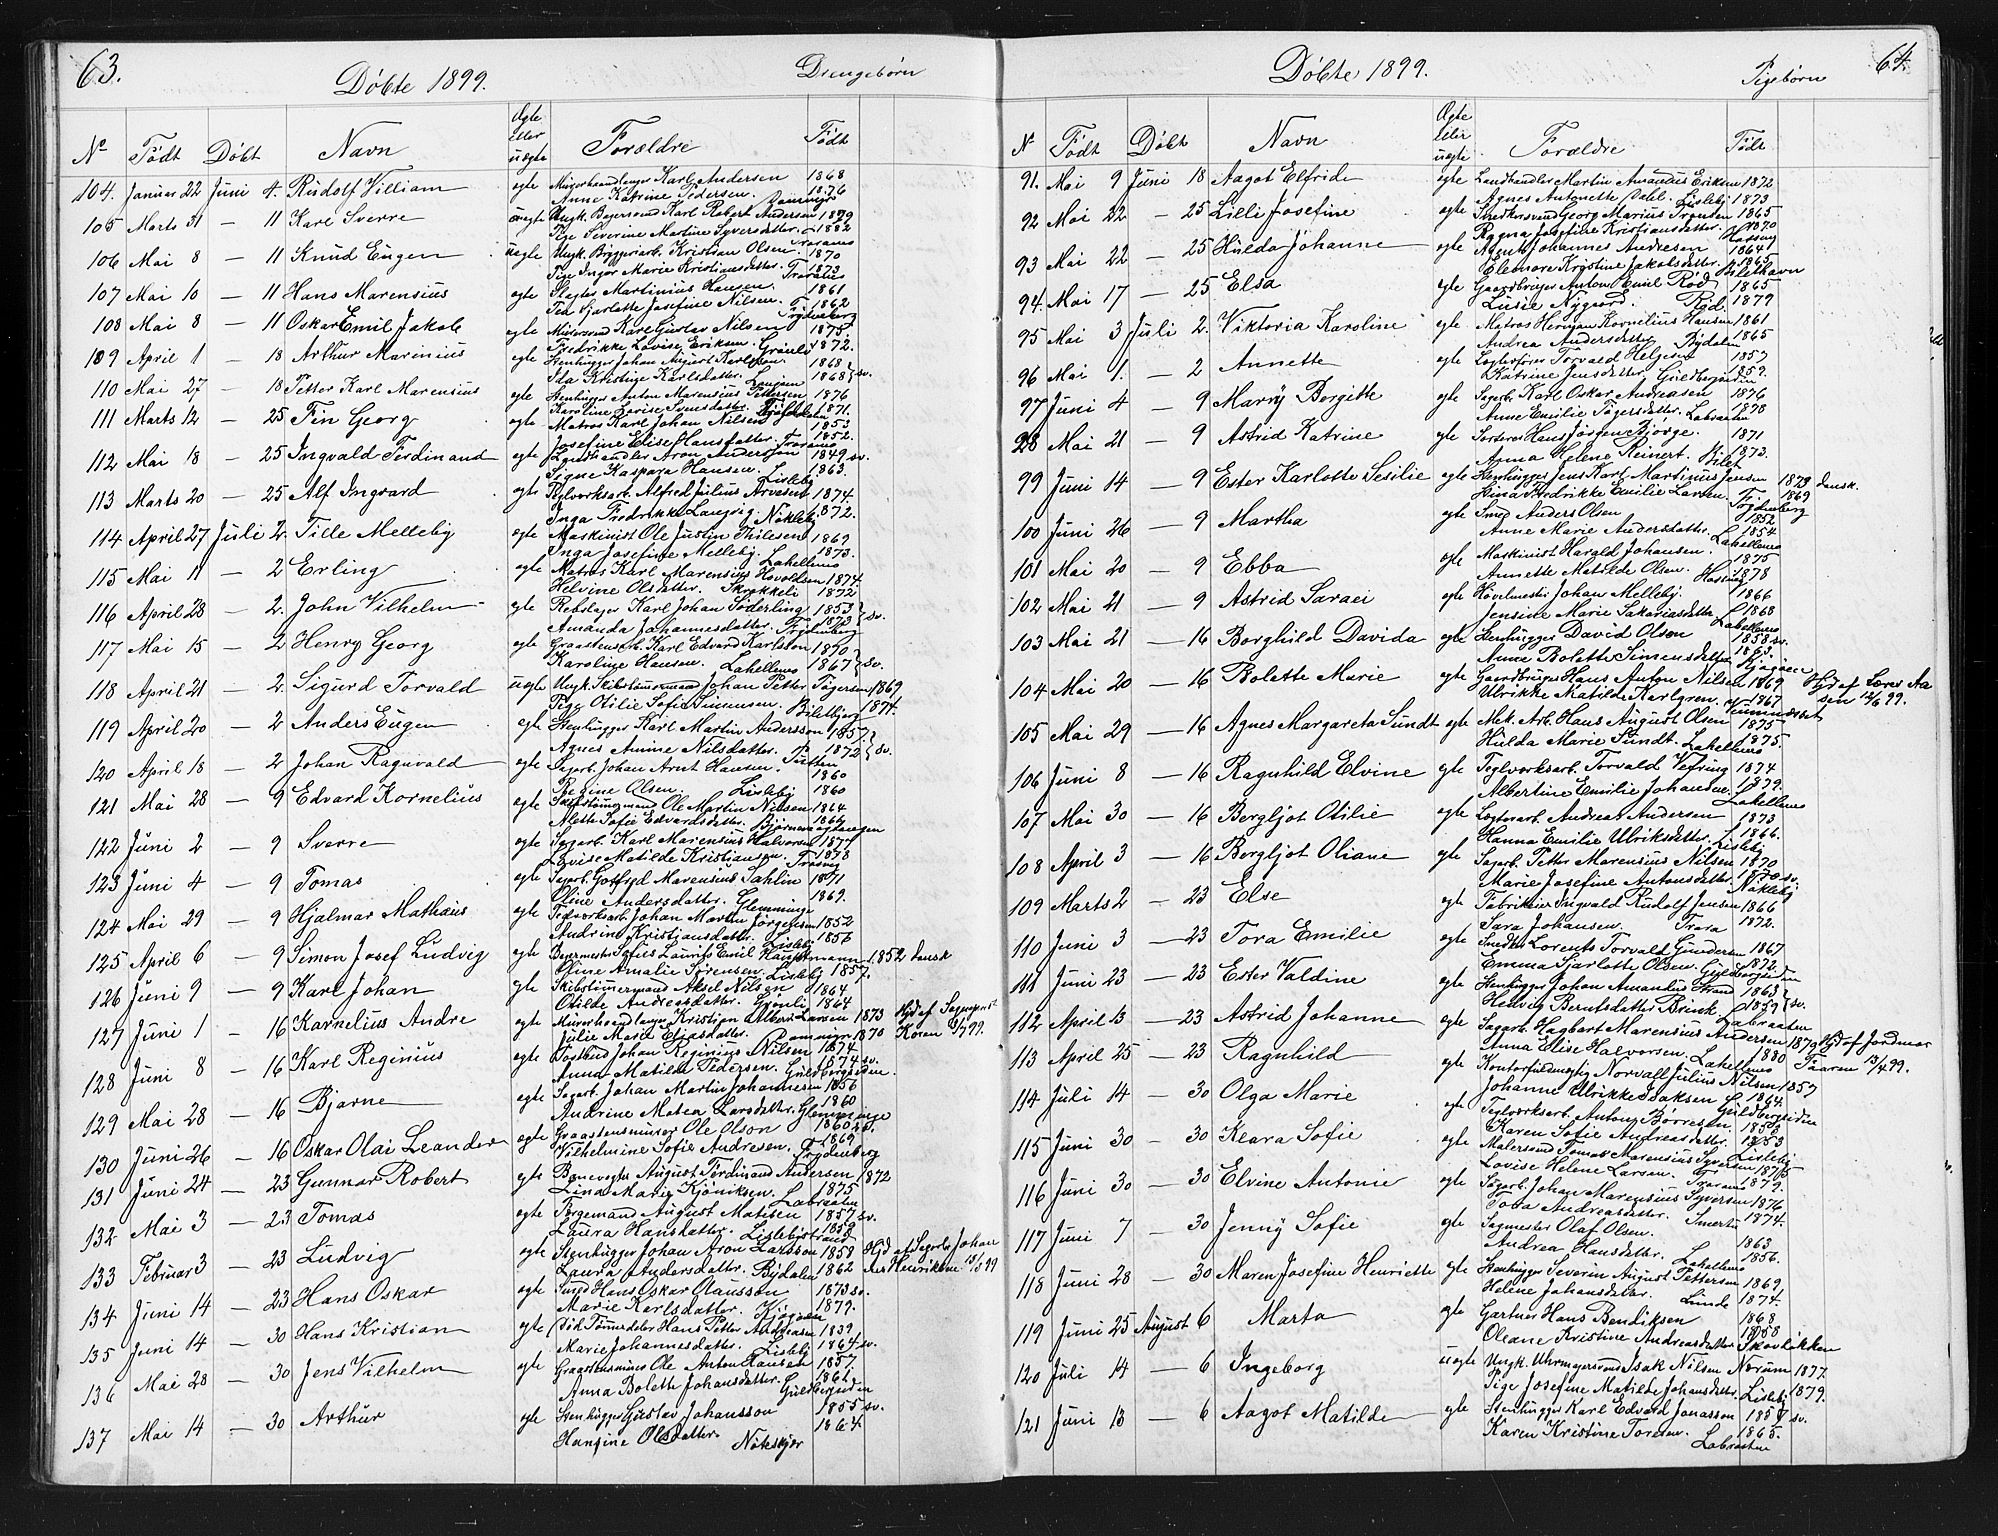 63.
Döbte 1899.
Drengebörn
No Födt Döbt Navn Ægte eller uægte Forældre Födt
104. Januar 22 Juni 4. Rudolf Villiam egte Murerhandlanger Karl Andersen 1868
Anne Katrine Pedersen. 1876
105 Marts 31 — 11 Karl Sverre uegte Ungk. Bøyersvend Karl Robert Andersen 1879
Pige Severine Martine Syversdatter. 1882
106 Mai 8 — 11 Knud Eugen uegte Ungk. Bryggeriarb. Kristian Olsen. 1870
Pige Inger Marie Kristiansdatter. Traraveien 1873
107 Mai 10 — 11 Hans Marensius egte Slagter Martinius Hansen. 1861
Tea Sjarlotte Josefine Nilsen. 1862
108 Mai 8 — 11 Oskar Emil Jakob egte Murersvend Karl Gustav Nilsen
Fredrikke Lovise Eriksen. Grönli 1872.
109 April 1 — 18 Arthur Marinius egte Stenhugger Johan August Karlsson. 1868
Ida Kristine Karlsdatter. 1868 sv.
110 Mai 27 — 18 Petter Karl Marensius egte Stenhugger Anton Marensius Pettersen 1876
Karoline Lovise Svensdatter. 1871.
111 Marts 12 — 25 Fin Georg egte Matros Karl Johan Nilsen 1853
Josefine Elise Hansdatter. 1852.
112 Mai 18 — 25 Ingvald Ferdinand egte Landhandler Aron Andersson 1849 sv.
Signe Kaspara Hansen. Lisleby 1863.
113 Marts 20 — 25 Alf Ingvard egte Teglverksarb. Alfred Julius Arvesen 1874.
Inga Fredrikke Langvig. Nökleby 1872.
114 April 27 Juli 2. Tille Melleby egte Maskinist Ole Justin Thilesen 1869
Inga Josefine Melleby. Lahellemo 1873.
115 Mai 11 — 2 Erling egte Matros Karl Marensius Hovoldsen 1874.
Helvine Olsdatter. Skrokkeli 1872
116 April 28 — 2. John Vilhelm egte Rebslager Karl Johan Söderling 1853 sv.
Amanda Johannesdatter. Frydenberg 1873
117 Mai 15 — 2 Henry Georg egte Graastensarb. Karl Edvard Karlsson 1870
Karoline Hansen. Lahellemo 1867 sv.
118 April 21 — 2. Sigurd Torvald uegte Ungk. Skibstömmermand Johan Petter Tögersen 1869
Pige Otilie Sofie Simensen. Biletbjerg 1874.
119 April 20 — 2 Anders Eugen egte Stenhugger Karl Martin Andersson 1857.
Agnes Amine Nilsdatter. Putten 1872 sv.
120 April 18 — 2 Johan Ragnvald egte Sagarb. Johan Arnt Hansen. 1860
Regine Olsen. Lisleby 1860
121 Mai 28 — 9 Edvard Kornelius egte Skibstömmermand Ole Martin Nilsen 1864
Alette Sofie Edvardsdatter. 1864
122 Juni 2 — 9 Sverre egte Sagarb. Karl Marensius Halvorsen 1874
Lovise Matilde Kristiansen. 1873
123 Juni 4 — 9 Tomas egte Sagarb. Gotfryd Marensius Sahlin 1871
Oline Andersdatter. Glemminge 1869.
124 Mai 29 — 9 Hjalmar Mathæus egte Teglverksarb. Johan Martin Jörgensen 1852
Andrine Kristiansdatter. Lisleby 1856
125 April 6 — 9 Simon Josef Ludvig egte Bagermester Sofus Laurits Emil Hauptmann 1852 dansk
Oline Amalie Sørensen. Lisleby 1857.
126 Juni 9 — 9 Karl Johan egte Skibstömmermand Aksel Nilsen 1864
Otilde Andreasdatter. Grönli 1864
127 Juni 1 — 16 Kornelius Andre egte Murerhandlanger Kristian Albert Larsen 1873 Hjd af Sogneprest
Julie Marie Eliasdatter. 1870 Koren 9/7 99.
128 Juni 8 — 16 Karl Reginius egte Postbud Johan Reginius Nilsen 1874
Anna Matilde Pedersen. Guldbergsiden. 1874 sv.
129 Mai 28 — 16 Bjarne egte Sagarb. Johan Martin Johannesen 1856
Andrine Matea Larsdatter. Glemminge 1860
130 Juni 26 — 16 Oskar Olai Leander egte Graastensminer Ole Olson 1860 sv.
Vilhelmine Sofie Andresen. Frydenberg 1869
131 Juni 24 — 23 Gunnar Robert egte Banevogter August Ferdinand Andersen 1872
Lina Marie Kjöniksen. Labraaten 1875
132 Mai 3 — 23 Tomas egte Færgemand August Matisen 1857 sv.
Laura Hansdatter. Lislebystrand 1859
133 Februar 3 — 23 Ludvig egte Stenhugger Johan Aron Larsson 1858 Hjd af Sagarb. Johan
Laura Andersdatter. Bydalen 1862 Henriksen 13/2 99
134 Juni 14 — 23 Hans Oskar egte Smed Hans Oskar Clausson 1873 sv.
Marie Karlsdatter. 1879.
135 Juni 14 — 30 Hans Kristian egte Sid. Tömmerdeler Hans Petter Andreasen 1839
Marie Johannesdatter. Lisleby 1864 sv.
136 Mai 28 — 30 Jens Vilhelm egte Graastensminer Ole Anton Hansen 1857.
Anna Bolette Johansdatter. Guldbergsiden 1861
137 Mai 14 — 30 Arthur egte Stenhugger Gustav Johansson 1855 sv.
Hansine Olsdatter. Nöteskjær 1864.
64.
Döbte 1899.
Pigebörn
N Födt Döbt Navn Ægte eller uægte Forældre Födt
91. Mai 9 Juni 18 Aagot Elfride egte Landhandler Martin Amandus Eriksen 1872
Agnes Antonette Dahl. Lisleby 1873
92 Mai 22 — 25 Lilli Josefine egte Smedsvend Georg Marius Svendsen 1865
Ragna Josefine Kristiansdatter. 1870
93 Mai 22 — 25 Hulda Johanne egte Agent Johannes Andresen 1864
Eleonore Kristine Jakobsdatter. 1865
94. Mai 17 — 25 Elsa egte Gaardbruger Anton Emil Röd 1865
Lusie Nygaard. Röd. 1879
95 Mai 3 Juli 2. Viktoria Karoline egte Matros Herman Kornilius Hansen 1861
Andrea Andersdatter Bydalen 1865
96 Mai 1. — 2 Annette egte Logterforer Torvald Helgesen 1857
Katrine Jensdatter. Guldbergsiden 1859.
97 Juni 4 — 9 Marry Borgitte egte Sagarb. Karl Oskar Andreasen 1876
Anne Emilie Tögersdatter. Labraaten 1878
98 Mai 21 — 9 Astrid Katrine egte Sorterer Hans Jörgen Bjorge. 1871
Anna Helene Reinert. Bilet 1873.
99 Juni 14 — 9 Ester Karlotte Sesilie egte Stenhugger Jens Karl Martinus Jensen 1873 dansk.
Hina Fredrikke Emilie Larsen. Frydenberg 1869
100 Juni 26 — 9 Martha egte Smed Anders Olsen 1852
Anne Marie Andersdatter. Lahellemo 1854
101 Mai 20 — 9 Ebba egte Maskinist Harald Johansen. 1875
Annette Matilde Olsen. Hassing 1878
102 Mai 21 — 9 Astrid Saraei egte Hövelmester Johan Melleby 1866
Jensine Marie Sakariasdatter Lahellemo 1868
103 Mai 21 — 16 Borghild Davida egte Stenhugger David Olsen 1858 sv.
Anne Bolette Simensdatter 1863.
104 Mai 20 — 16 Bolette Marie egte Gaardbruger Hans Anton Nilsen 1869 Hjd af Lærer Aa
Ulrikke Matilde Karlgren. 1867 sen 12/6 99.
105 Mai 29 — 16 Agnes Margareta Sundt egte Mek. Arb. Hans August Olsen 1875
Hilda Marie Sundt. Lahellemo 1875.
106 Juni 8 — 16 Ragnhild Elvine egte Teglverksarb. Torvald Vefring 1874
Albertine Emilie Johansen. Lahellemo 1879.
107 Mai 30 — 16 Bergljot Otilie egte Logterarb. Andreas Andersen 1873
Hanna Emilie Ulriksdatter. Lisleby 1866.
108 April 3 — 16 Bergljot Oliane egte Sagarb. Petter Marensius Nilsen 1870
Marie Josefine Antonsdatter. Nökleby 1870 sv.
109 Marts 2 — 23 Else egte Fabrikeier Ingvald Rudolf Jensen 1866
Sara Johansen. Trara 1872.
110 Juni 3 — 23 Tora Emilie egte Snedker Lorents Torvald Gundersen 1867
Emma Sjarlotte Olsen. Guldbergsiden 1872.
111 Juni 23 — 23 Ester Valdine egte Stenhugger Johan Amandus Strand 1863
Hedvig Berntsdatter Brink. Labraaten 1859 sv.
112 April 13 — 23 Astrid Johanne egte Sagarb. Hagbart Marensius Andersen 1879 Hjd af Jordmor
Anna Elise Halvorsen. Lahellemo 1880 Paaren 13/4 99.
113 April 25 — 23 Ragnhild egte Kontorfuldmegtig Norvall Julius Nilsen 1857
Johanne Ulrikke Isaksen Guldbergsiden 1864.
114 Juli 14 — 30 Olga Marie egte Teglverksarb. Antony Börresen. 1856
Karen Sofie Andreasdatter. Lisleby 1853
115 Juni 30 — 30 Klara Sofie egte Malersvend Tomas Marensius Syversen 1876
Lovise Helene Larsen. Traramo 1879.
116 Juni 30 — 30 Elvine Antonie egte Sagarb. Johan Marensius Syversen 1876
Tora Andreasdatter. Smertu 1874.
117 Juni 7 — 30 Jenny Sofie egte Sagmester Olaf Olsen. 1863
Andrea Hansdatter. Lahellemo 1856.
118 Juni 28 — 30 Maren Josefine Henriette egte Stenhugger Severin August Pettersen 1869
Helene Johansdatter. Lunde 1874.
119 Juni 25 August 6 Marta egte Gartner Hans Bendiksen 1868
Oleane Kristine Andreasdatter Skovlökken 1858
120 Juli 14 — 6 Ingeborg uegte Ungk. Uhrmagersvend Isak Nilsen Norum 1877.
Pige Josefine Matilde Johansdatter. Lisleby 1879.
121 Juni 13 — 6 Aagot Matilde egte Stenhugger Karl Edvard Jonasson 1857 sv.
Karen Kristine Toresen. 1865.
Labraaten